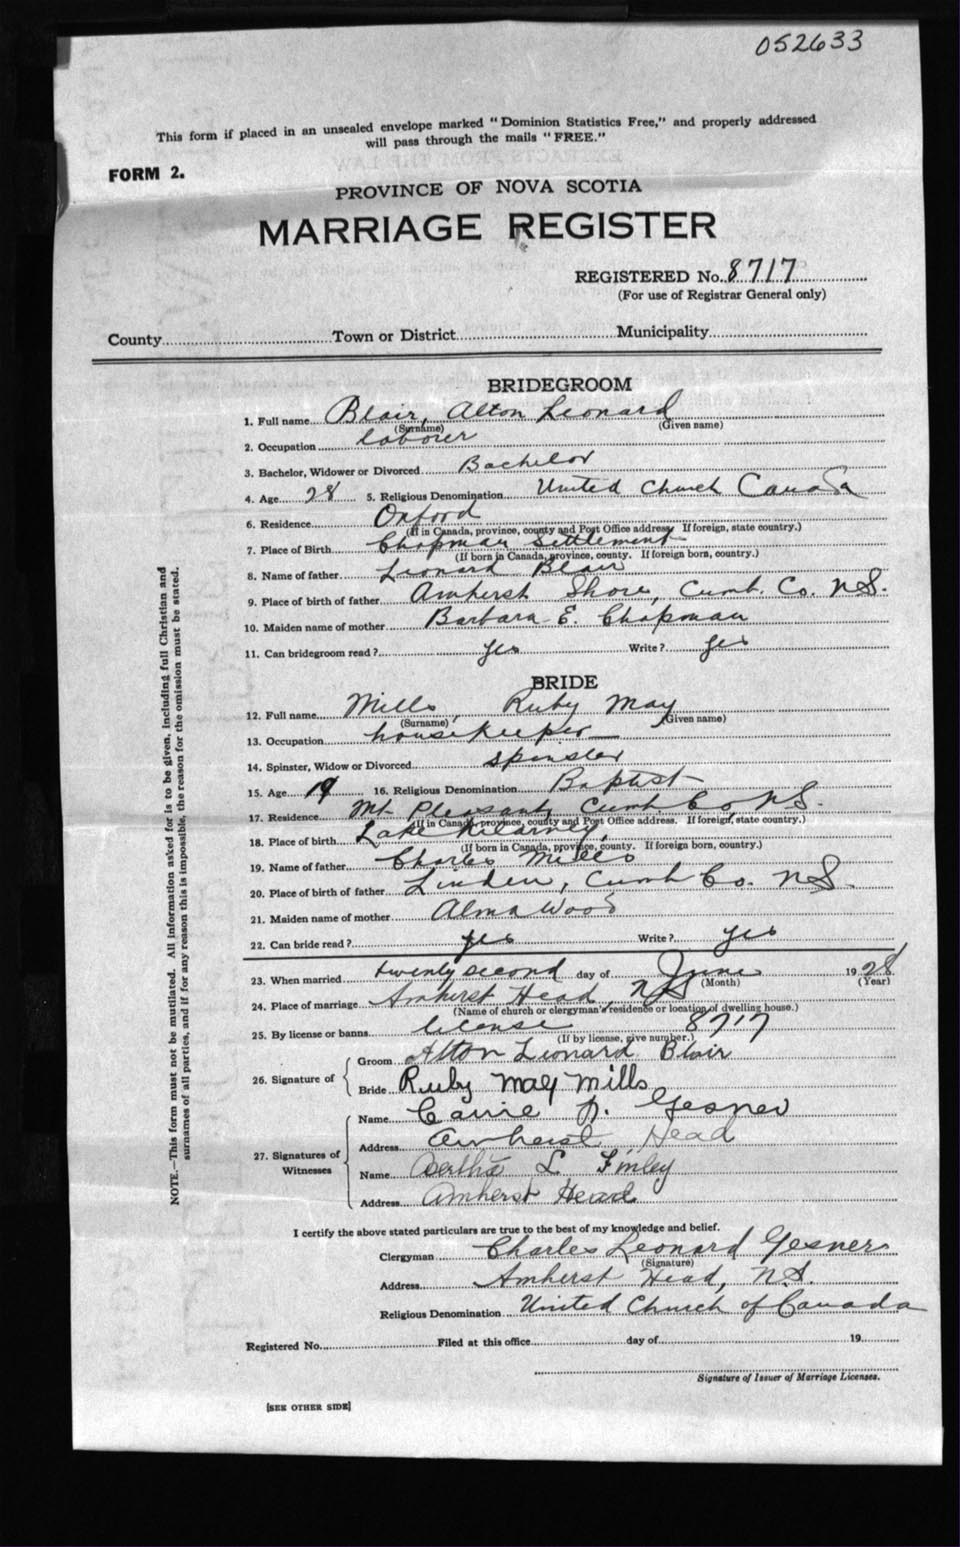 052633
This form if placed in an unsealed envelope marked "Dominion Statistics Free," and properly addressed
will pass through the mails "FREE."
FORM 2.
PROVINCE OF NOVA SCOTIA
MARRIAGE REGISTER
REGISTERED No. 8717
(For use of Registrar General only)
County Town or District Municipality
BRIDEGROOM
1. Full name Blair, Alton Leonard
(Surname) (Given name)
2. Occupation laborer
3. Bachelor, Widower or Divorced Bachelor
4. Age 28 5. Religious Denomination United Church Canada
6. Residence Oxford
(If in Canada, province, county and Post Office address. If foreign, state country.)
7. Place of Birth Chapman Settlement
(If born in Canada, province, county. If foreign born, country.)
8. Name of father Leonard Blair
9. Place of birth of father Amherst Shore, Cumb. Co. N.S.
10. Maiden name of mother Barbara E. Chapman
11. Can bridegroom read? yes Write? yes
BRIDE
12. Full name Mills, Ruby May
(Surname) (Given name)
13. Occupation housekeeper
14. Spinster, Widow or Divorced spinster
15. Age 19 16. Religious Denomination Baptist
17. Residence Mt. Pleasant, Cumb Co, N.S.
(If in Canada, province, county and Post Office address. If foreign, state country.)
18. Place of birth Lake Kilarney,
(If born in Canada, province, county. If foreign born, country.)
19. Name of father Charles Mills
20. Place of birth of father Linden, Cumb Co. N.S.
21. Maiden name of mother Alma Wood
22. Can bride read? yes Write? yes
23. When married twenty second day of June 1928
(Month) (Year)
24. Place of marriage Amherst Head, N.S
(Name of church or clergyman's residence or location of dwelling house.)
25. By license or banns license 8717
(If by license, give number.)
26. Signature of Groom Alton Leonard Blair
Bride Ruby May Mills
27. Signatures of Witnesses
Name Carrie Gesner
Address Amherst Head
Name Bertha L Finley
Address Amherst Head
I certify the above stated particulars are true to the best of my knowledge and belief.
Clergyman Charles Leonard Gesner
(Signature)
Address Amherst Head, N.S.
Religious Denomination United Church of Canada
Registered No. Filed at this office day of 19
Signature of Issuer of Marriage Licenses.
[SEE OTHER SIDE]
NOTE.—This form must not be mutilated. All information asked for is to be given, including full Christian and
surnames of all parties, and if for any reason this is impossible, the reason for the omission must be stated.